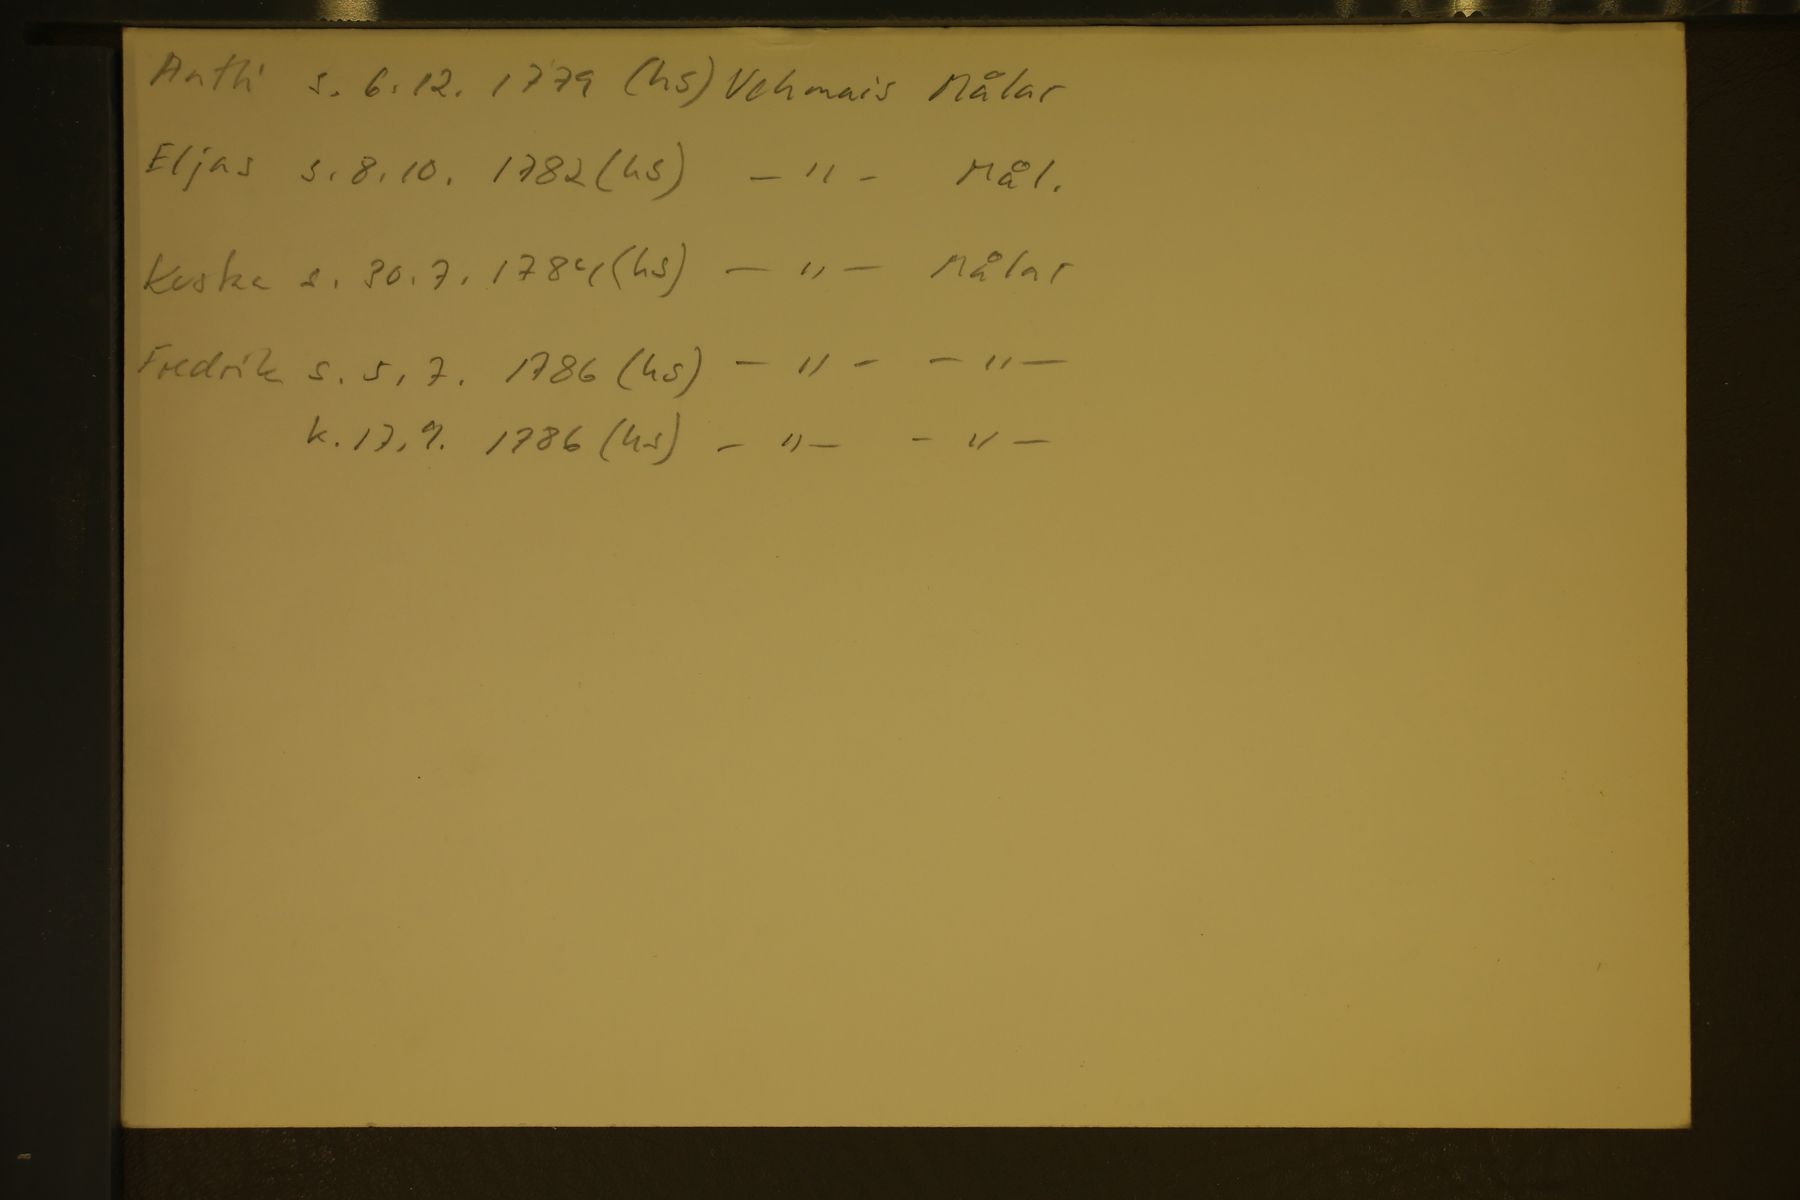 Antti s. 6.12. 1779 (hs) Vehmais Målar
Eljas s. 8.10. 1782 (hs) – " – Mål.
Kuska s. 30.7. 1784 (hs) – " – Målar
Fredrik s. 5.7. 1786 (hs) – " – – " –
k. 17.9. 1786 (hs) – " – – " –